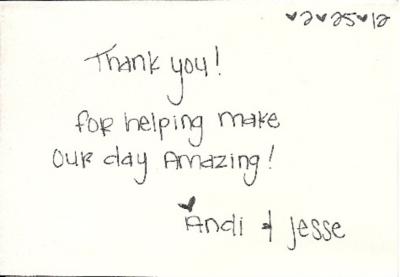 ♥2♥25♥12
Thank you!
for helping make
our day Amazing!
♥Andi & Jesse